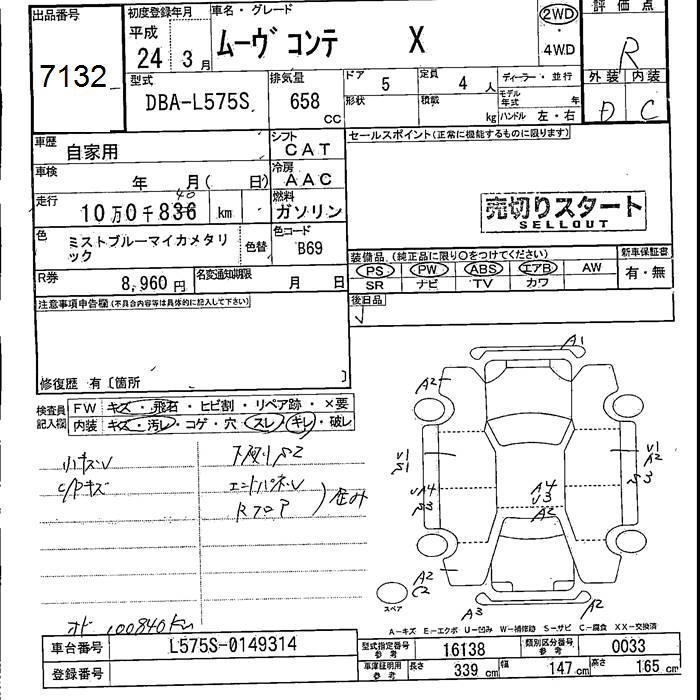 出品番号 初度登録年月 車名・グレード 2WD 評価点
7132 平成 24 3月 ムーヴ コンテ X 4WD R
型式 排気量 ドア 5 定員 4人 ディーラー・並行 外装 内装
DBA-L575S 658 cc 形状 積載 kg モデル年式 年 ハンドル 左・右 D C
車歴 自家用 シフト CAT セールスポイント(正常に機能するものに限ります)
車検 年 月( 日) 冷房 AAC
走行 10万0千836 40 km 燃料 ガソリン 売切りスタート
SELLOUT
色 ミストブルーマイカメタリック 色替 色コード B69
装備品(純正品に限り〇をつけてください) 新車保証書
PS PW ABS エアB AW 有・無
SR ナビ TV カワ
R券 8,960円 名変通知期限 月 日
後日品
注意事項申告欄(不具合内容等は具体的に記入して下さい)
修復歴 有〔箇所 〕
検査員記入欄 FW キズ・飛石・ヒビ割・リペア跡・×要
内装 キズ・汚レ・コゲ・穴・スレ・キレ・破レ
小キズレ 下廻りS2
C/Pキズ エンドパネル
Rフロア 歪み
オド 100840km
A1
A2
V1 S1
V1 A2
S3
UA4 S3
A4 V3
A2
A2 C2
A3
A2
スペア
A-キズ E-エクボ U-凹み W-補修跡 S-サビ C-腐食 XX-交換済
車台番号 L575S-0149314 型式指定番号 参考 16138 類別区分番号 参考 0033
登録番号 車庫証明用 参考 長さ 339cm 幅 147cm 高さ 165cm